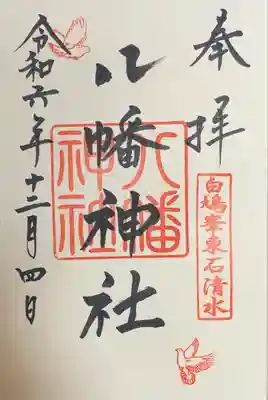 奉拝
白鳩峯東石清水
八幡神社
八幡神社
令和六年十二月四日